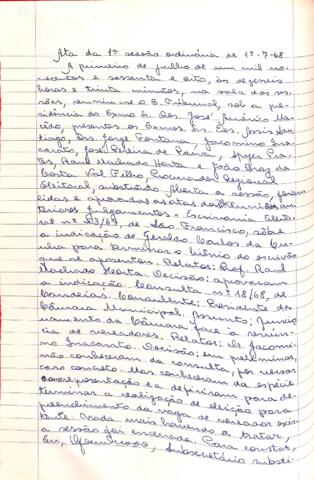 Ata da 1ª sessão ordinária de 1º-7-68
A primeiro de julho de um mil no-
vecentos e sessenta e oito, às dezeseis
horas e trinta minutos, na sala das ses-
sões, reuniu-se o E. Tribunal, sob a pre-
sidência do Exmo Sr. Des. José Américo Ma-
cêdo, presentes os Exmos Srs. Des. Assis San-
tiago, Drs. Jorge Fontana, Jacomino Ina-
carato, José Pereira de Paiva, Gouthier Pra-
tes, Raul Machado Horta e João Braz da
Costa Val Filho Procurador Regional
Eleitoral, substituto. Aberta a sessão, foram
lidas e aprovadas as atas das reuniões an-
teriores. Julgamentos = Escrivania Eleito-
ral nº 203/67, de São Francisco, sôbre
a indicação de Geraldo Carlos da Cu-
nha para terminar o biênio do escrivão
que se aposentou. Relator: Prof. Raul
Machado Horta. Decisão: aprovaram
a indicação. Consulta nº 18/68, de
Candeias. Consulente: Presidente da
Câmara Municipal. Assunto:
da Câmara face a renún-
cia de vereadores. Relator: Dr. Jacomi-
no Inacarato. Decisão: em preliminar,
não conheceram da consulta, por versar
caso concreto. Mas conheceram da espécie
como representação e a deferiram para de-
terminar a realização de eleição para
preenchimento da vaga de vereador exis-
tente. Nada mais havendo a tratar,
a sessão foi encerrada. Para constar,
Eu, Subsecretário substi-